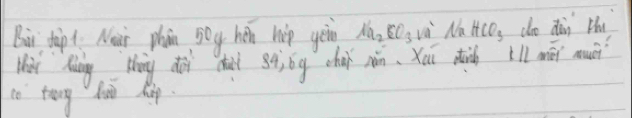 Bài tập 1: Nung phân 50g hỗn hợp gồm Na2CO3 và NaHCO3 cho đến khi
khối lượng không đổi được 34,5g chất rắn. Xác định kll mỗi muối
có trong hỗn hợp.